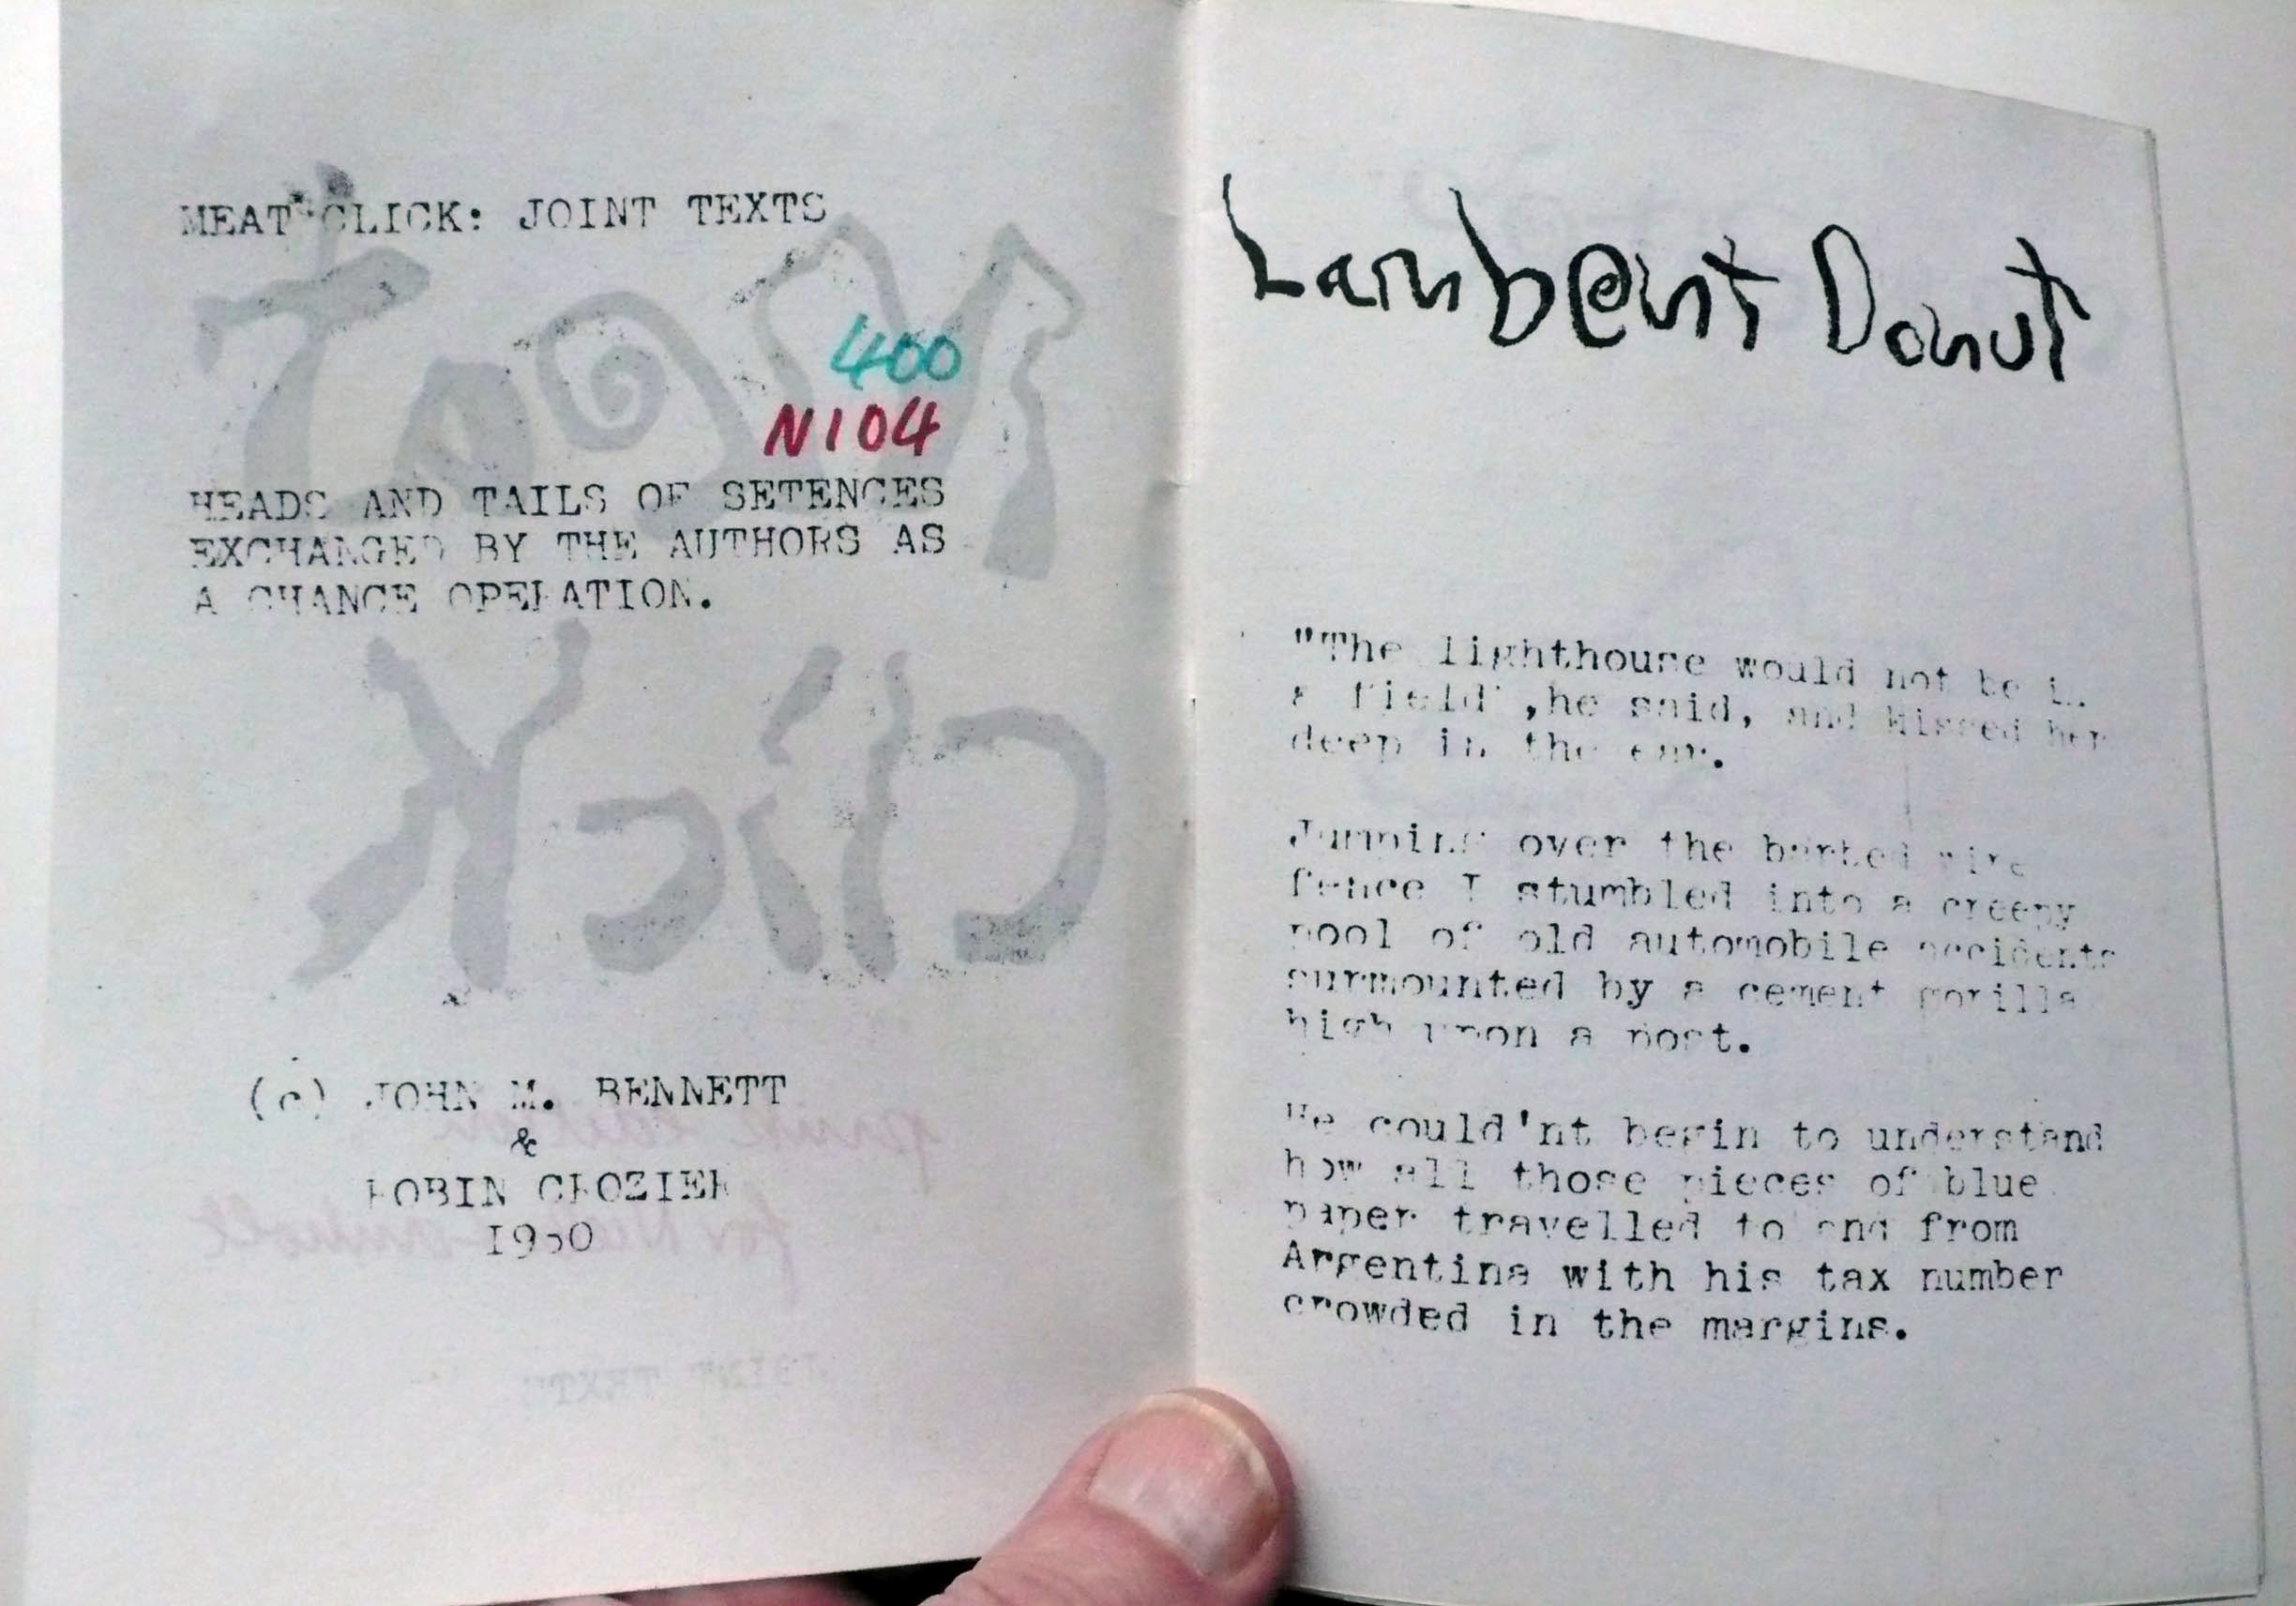 MEAT CLICK: JOINT TEXTS
400
N104
HEADS AND TAILS OF SETENCES
EXCHANGED BY THE AUTHORS AS
A CHANCE OPERATION.
(c) JOHN M. BENNETT
&
ROBIN CROZIER
Lambent Donut
"The lighthouse would not be in
a field",he said, and kissed her
deep in the ear.
Jumping over the barbed wire
fence I stumbled into a creepy
pool of old automobile accidents
surmounted by a cement gorilla
high upon a post.
He could'nt begin to understand
how all those pieces of blue
paper travelled to and from
Argentina with his tax number
crowded in the margins.